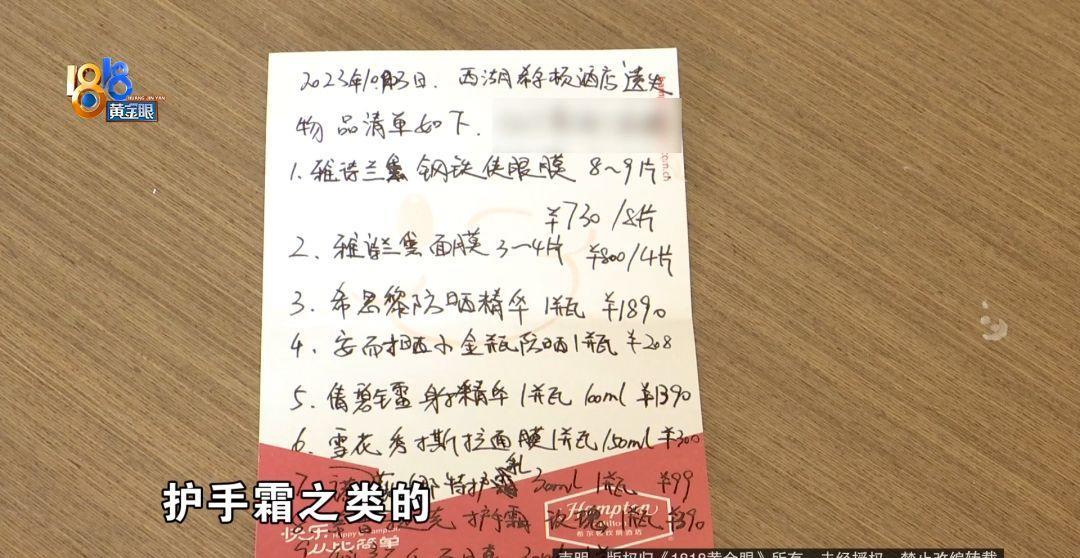 1818
HUANG JIN YAN
黄金眼
2023年10月3日. 西湖希尔顿酒店遗失
物品清单如下.
.com.cn
1. 雅诗兰黛 钢铁侠眼膜 8~9片
¥730/8片
2. 雅诗兰黛面膜 3~4片 ¥800/4片
3. 希思黎防晒精华 1瓶 ¥1890
4. 安而晒小金瓶防晒1瓶 ¥208
5. 倩碧镭射精华 1瓶 100ml ¥1390
6. 雪花秀 撕拉面膜1瓶 150ml ¥300
7. 特护乳 30ml 1瓶 ¥99
护手霜 玫瑰 1瓶 ¥390
护手霜之类的
Hampton
by Hilton
希尔顿欢朋酒店
快乐
从此简单
Happy@Hampton
声明：版权归《1818黄金眼》所有，未经授权，禁止改编转载